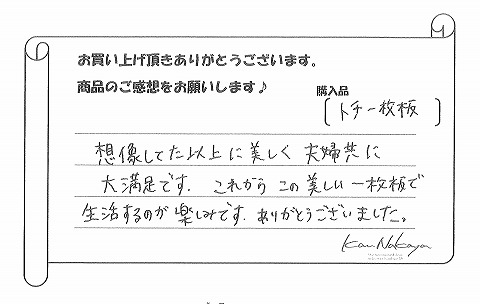 お買い上げ頂きありがとうございます。
商品のご感想をお願いします♪
購入品
[トチ一枚板]
想像してた以上に美しく 夫婦共に
大満足です. これから この美しい一枚板で
生活するのが 楽しみです. ありがとうございました。
Kan Nakaya